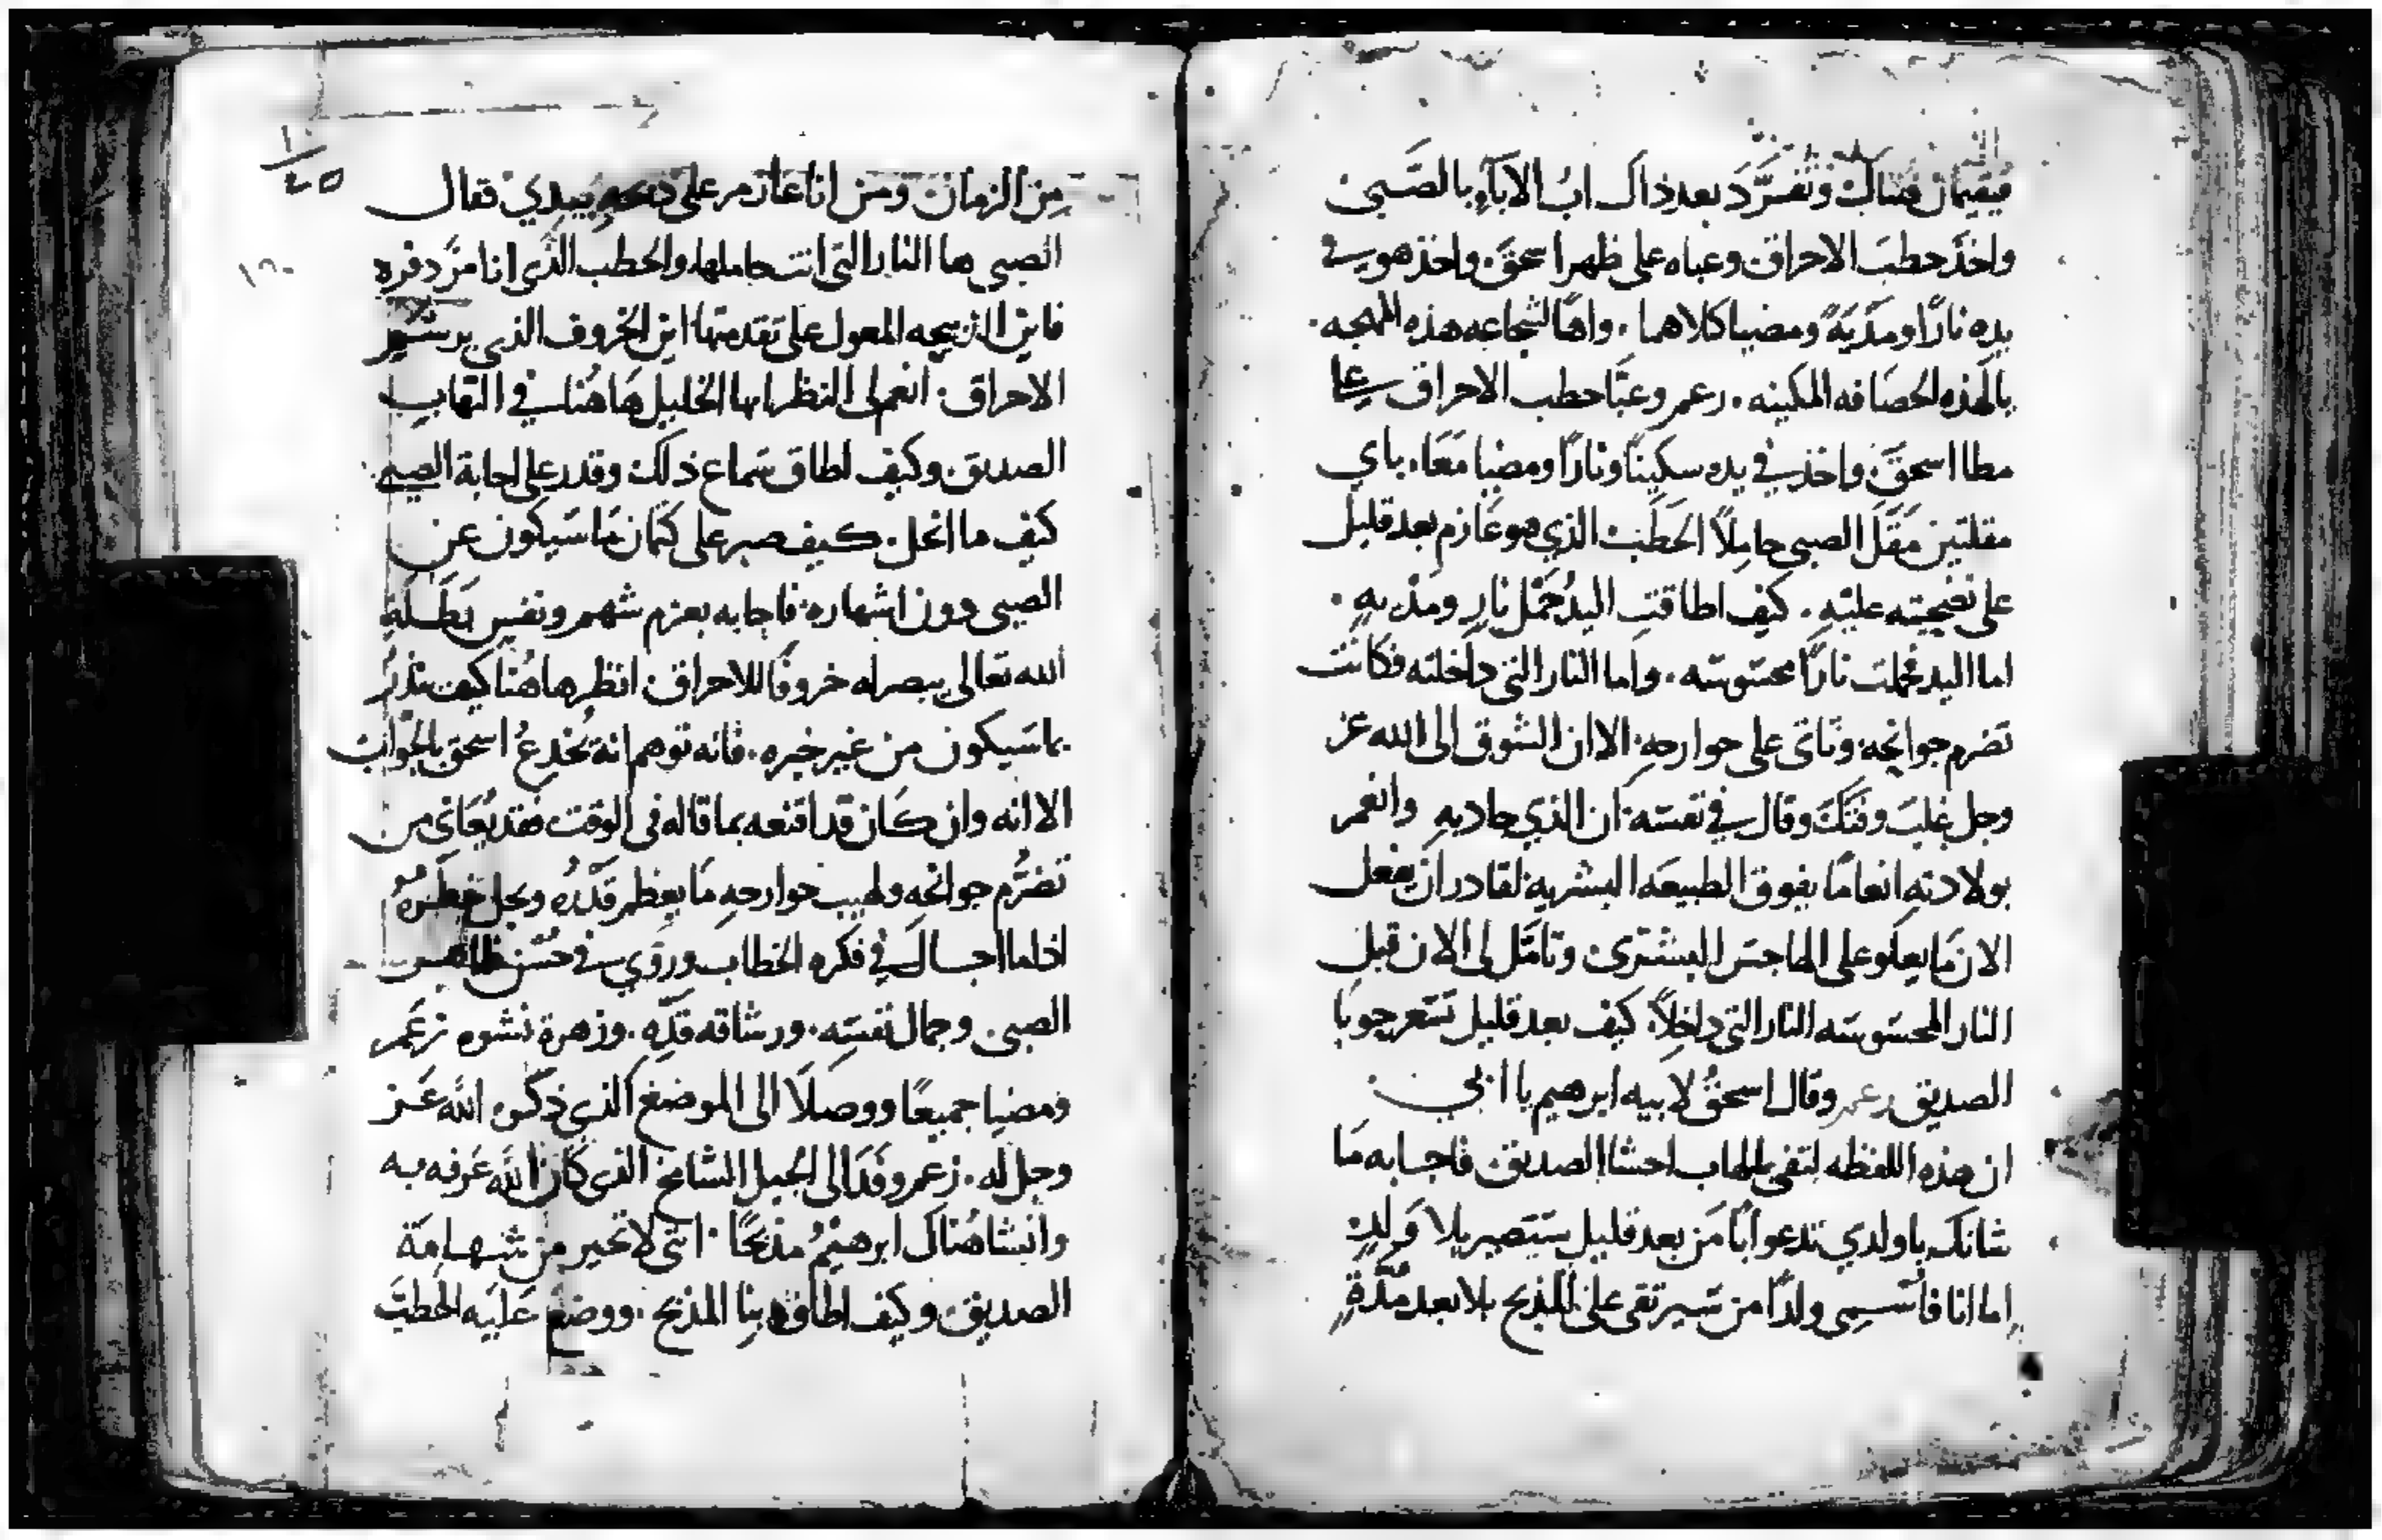 فيقيمان هناك وتفرَّدَ بعد ذاك ابُ الاباءِ بالصَّبىّ
واخذَ حطبَ الاحراق وعباه على ظهر اسحقَ. واخذ هو في
يده نارًا ومديَةً ومضيا كلاهما. واهًا لشجاعه هذه المهجه.
يا لهذه الحصَافه المكينه. زعم وعبَّا حطب الاحراق على
مطا اسحقَ. واخذ في يده سكينًا ونارًا ومضيا مَعًا. باي
مقلتين مَقَلَ الصبى حامِلاً الحَطَبَ الذي هو عَازم بعد قليل
على تضحيته عليَه. كيف اطاقت اليدُ حَمْل نارٍ ومديهٍ.
اما اليد فحملت نارًا محسوسَه. واما النار التي داخله فكانت
تضرم جوانحه وتاتى على جوارحهِ. الا ان الشوق الى الله عز
وجل غلبَ وفتَكَ وقال في نفسَه ان الذي جاد بهِ وانعم
بولادته انعامًا يفوق الطبيعَه البشريه لقادر ان يفعل
الان مَا يعلو على الهاجسَ البشرى وتامَّل لى الان قبل
النار المحسَوسَه النار التى داخلاً. كيف بعد قليل تسَعر جوبا
الصديق زعم وقال اسحقُ لابيه ابرهيم يا ابي
ان هذه اللفظه لتفى بالهاب احشا الصديق فاجابه مَا
شانك يا ولدي تدعوا ابًا مَن بعد قليل سَيَصير بلا وَلدٍ
اما انا فاسَمى ولدًا من سَيرتقى على المذبح بلا بعد مُدَّةٍ
١٠
٤٥
من الزمان ومَن انا عازم على ذبحه بيدي فقال
الصبى ها النار التى انت حاملها. والحطب الذَّى انا مزَّدفره
فاين الذبيحه المعول على تقدمتها اين الخروف الذى يرسَم
الاحراق. انعم لى النظر ايها الخليل هَاهُنا في التهاب
الصديق. وكيف اطاق سَماع ذلك وقدر على اجابة الصبى
كيف ما انحل. كيف صبر على كتمان مَا سَيكون عن
الصبى دون اشهاره. فاجابه بعزم شهم ونفسٍ بَطَلَةٍ
الله تعالى يبصر له خروفًا للاحراق. انظر هاهُنا كيف ينذرُ
بما سَيكون من غير خبره. فانه توهم انه يُخدعُ اسحق بالجَوابْ
الا انه وان كَان قد اقنعه بما قاله فى الوقت فقد يُعَاني من
تضرُّم جوانحه ولهيب جوارحهِ مَا يعظم قدْرُه ويجل خطَره
اذا ما اجال في فكره الخطاب وروَّي في حسْن ظاهر
الصبى. وجمال نفسَه. ورشاقه قدِّه. وزهرة نشوه زعَم
ومضيا جميعًا ووصلاَ الى الموضع الذى ذكره الله عَز
وجل له. زعم وفَدَا الى الجبل الشامخ الذى كان الله عَرفه به
وانشا هُناك ابرهيمُ مذبحًا. انى لاتحير من شهامَة
الصديق. وكيف اطاق بنا المذبح. ووضع عَليَه الحطبَ